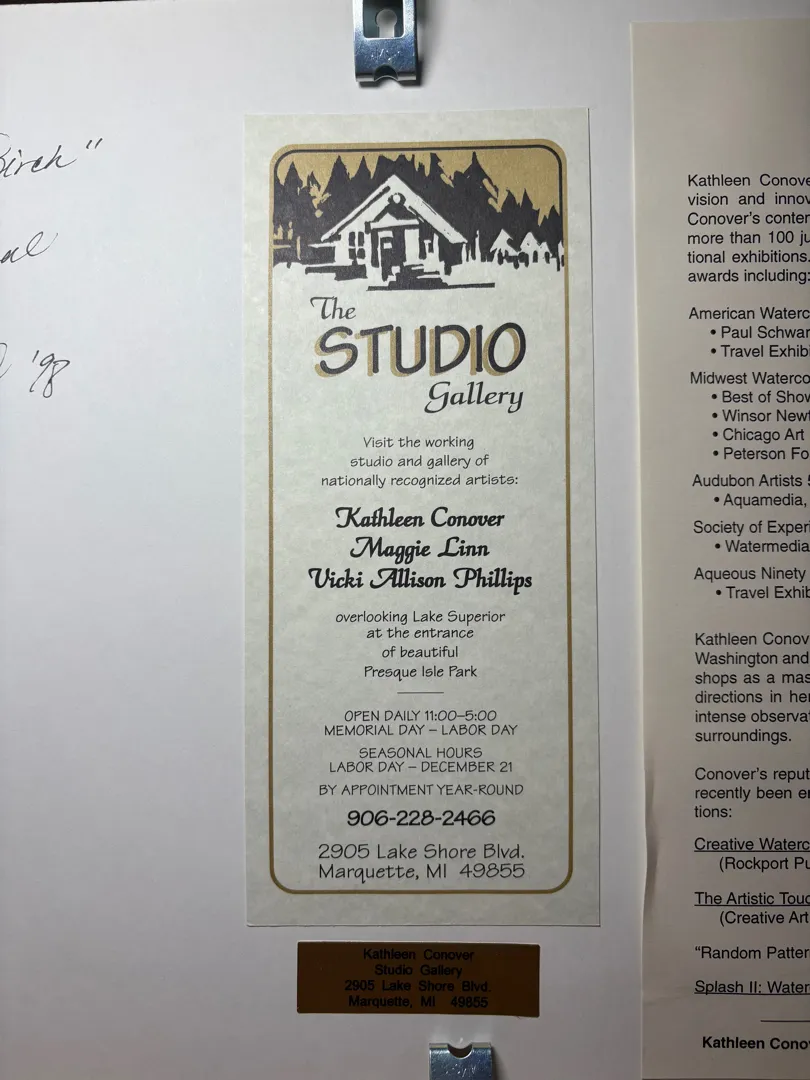 Birch"
'98
The
STUDIO
Gallery
Visit the working
studio and gallery of
nationally recognized artists:
Kathleen Conover
Maggie Linn
Vicki Allison Phillips
overlooking Lake Superior
at the entrance
of beautiful
Presque Isle Park
OPEN DAILY 11:00–5:00
MEMORIAL DAY – LABOR DAY
SEASONAL HOURS
LABOR DAY – DECEMBER 21
BY APPOINTMENT YEAR-ROUND
906-228-2466
2905 Lake Shore Blvd.
Marquette, MI 49855
Kathleen Conover
Studio Gallery
2905 Lake Shore Blvd.
Marquette, MI 49855
Kathleen Conove
vision and innov
Conover's conter
more than 100 ju
tional exhibitions.
awards including:
American Waterc
• Paul Schwar
• Travel Exhib
Midwest Waterco
• Best of Show
• Winsor Newt
• Chicago Art
• Peterson Fo
Audubon Artists
• Aquamedia,
Society of Experi
• Watermedia
Aqueous Ninety
• Travel Exhib
Kathleen Conov
Washington and
shops as a mas
directions in her
intense observat
surroundings.
Conover's reput
recently been en
tions:
Creative Waterc
(Rockport Pu
The Artistic Touc
(Creative Art
"Random Patter
Splash II: Water
Kathleen Cono